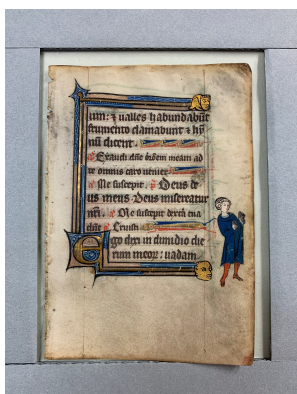 lim: ⁊ ualles habundabūt
frumento clamabunt ⁊ hẏ
nū dicent.
Exaudi dn̄e orōem meam ad
te omnis caro ueniet.
Me suscepit. Deus de
us meus Deus misereatur
nr̄i. Me suscepit dextera tua
dn̄e
Ego dixi in dimidio die
rum meoꝝ: uadam